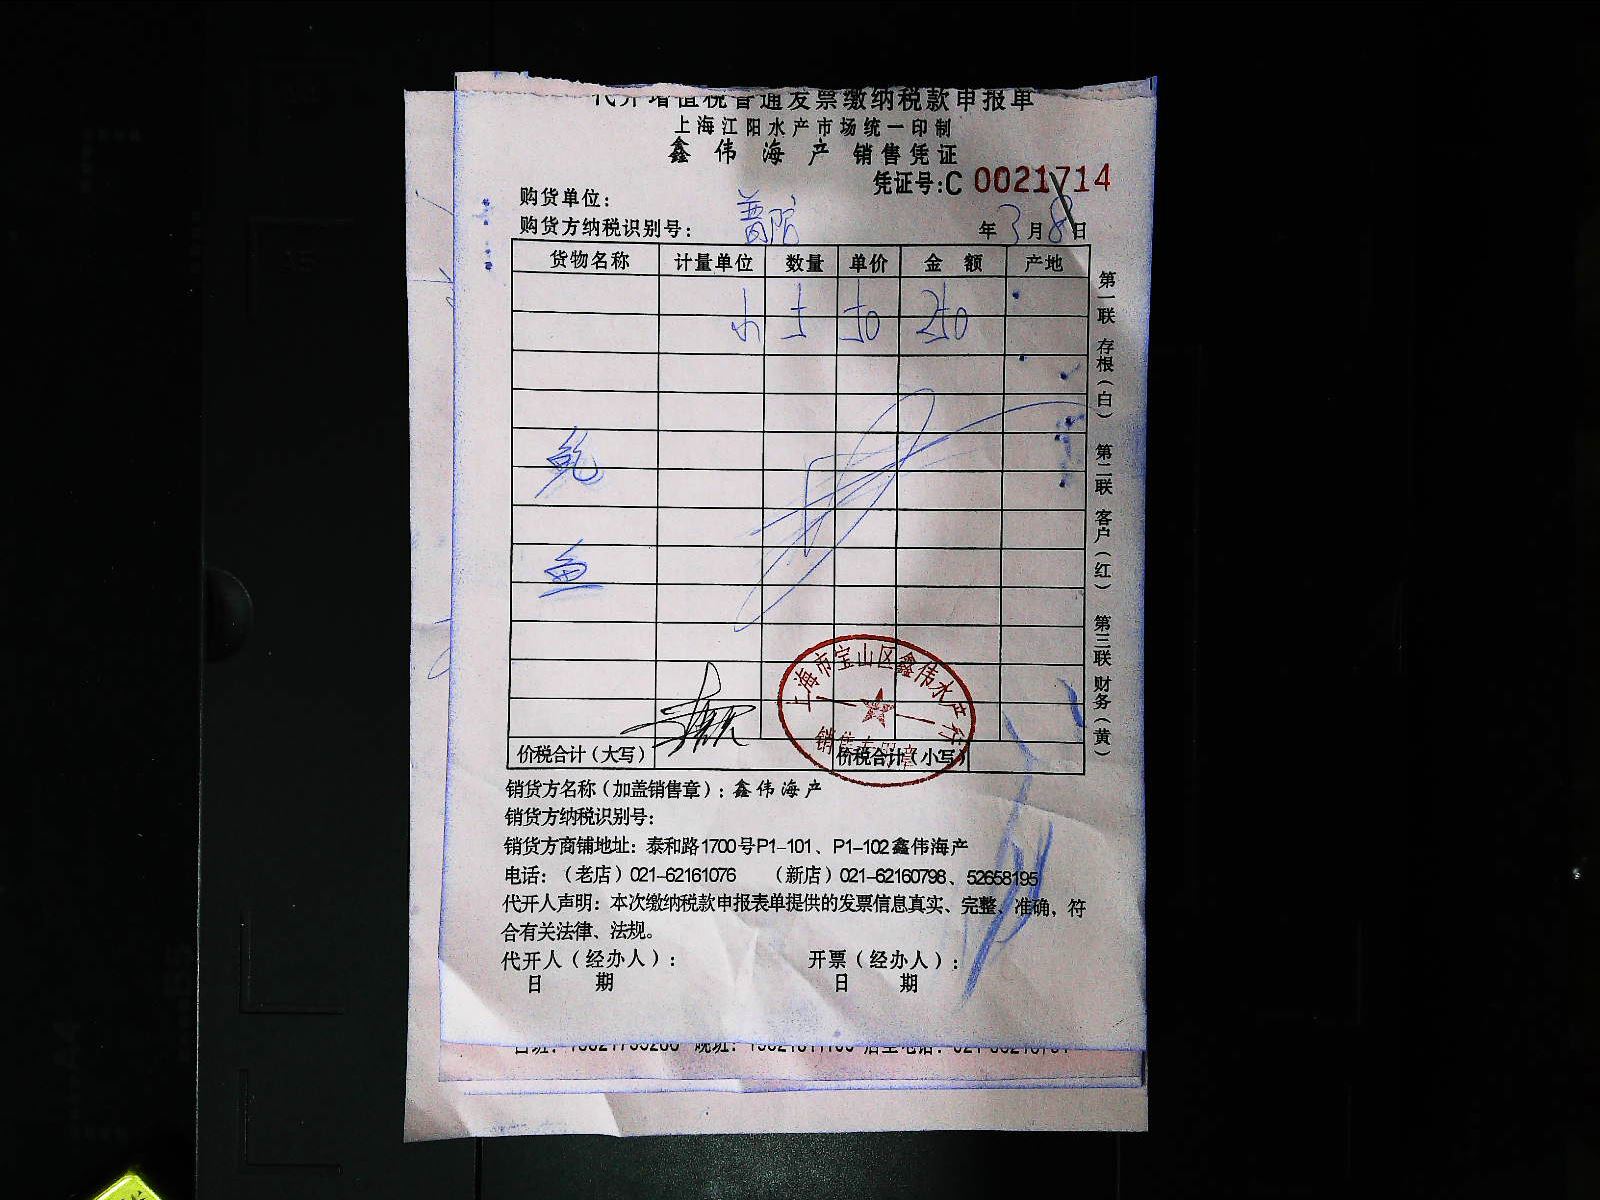 代开增值税普通发票缴纳税款申报单
上海江阳水产市场统一印制
鑫伟海产 销售凭证
凭证号:C 0021714
购货单位：
购货方纳税识别号： 普陀 年3月8日
货物名称 计量单位 数量 单价 金额 产地
50 250
鲍
鱼
价税合计（大写） 价税合计（小写）
上海市宝山区鑫伟水产行
销售专用章
销货方名称（加盖销售章）：鑫伟海产
销货方纳税识别号：
销货方商铺地址：泰和路1700号P1-101、P1-102鑫伟海产
电话：（老店）021-62161076 （新店）021-62160798、52658195
代开人声明：本次缴纳税款申报表单提供的发票信息真实、完整、准确，符
合有关法律、法规。
代开人（经办人）： 开票（经办人）：
日 期 日 期
第一联 存根（白） 第二联 客户（红） 第三联 财务（黄）